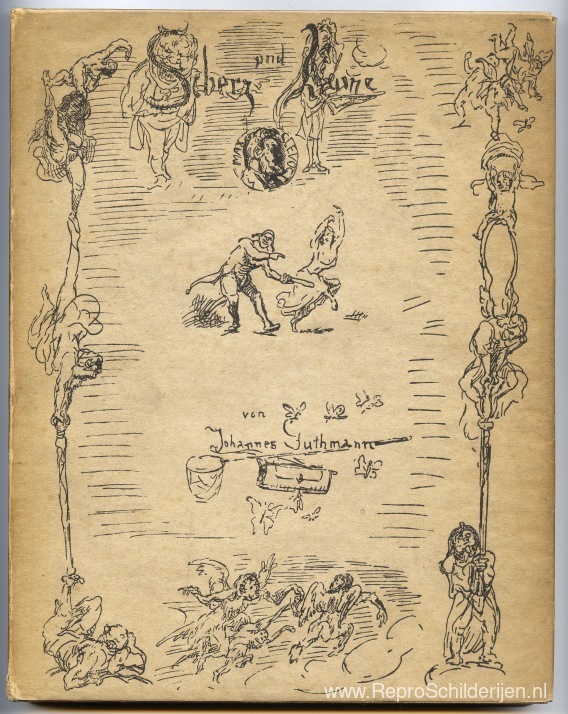 Scherz und Laune
von
Johannes Guthmann
www.ReproSchilderijen.nl